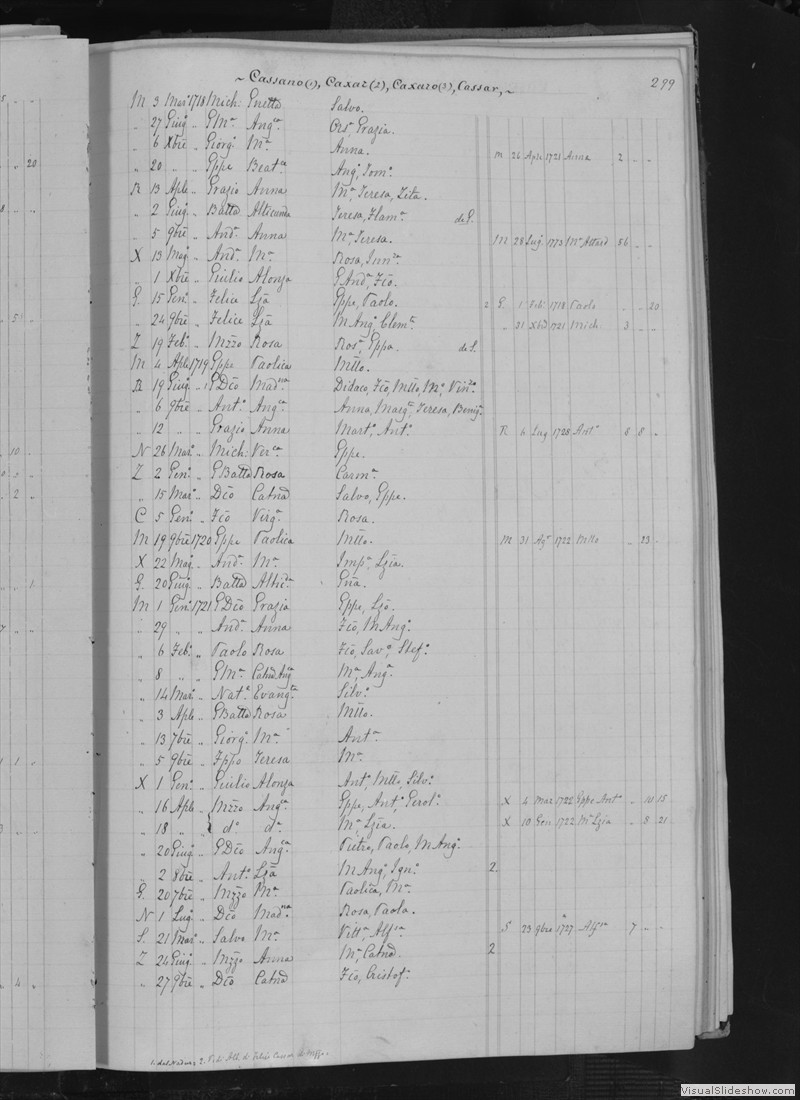 ~ Cassano(1), Caxar(2), Caxaro(3), Cassar, ~ 299
M 3 Mar: 1718 Mich: Enetta Salvo.
„ 27 Giug „ GMa Angca Ors, Grazia.
„ 6 Xbre „ Giorgo Ma Anna. M 26 Apr 1721 Anna 2 „ „
„ 20 „ „ Gppe Beatca Ango, Domo
R 13 Aple „ Grazio Anna Ma, Teresa, Zita.
„ 2 Giug „ Batta Teresa, Flama de G.
„ 5 9bre „ Anda Anna Ma, Teresa. M 28 Lug. 1773 Ma Attard 56 „ „
X 13 Mag „ Anda Ma Rosa, Innza
„ 1 Xbre „ Giulio Alonza GAnda, Fco.
G. 15 Gen: „ Felice Lza Gppe, Paolo. 2 G. 1 Feb: 1718 Paolo „ „ 20
„ 24 9bre „ Felice Lza MAnga, Clemta „ 21 Xbre 1721 Mich. 3 „ „
Z 19 Feb: „ Mzzo Rosa Rosa, Gppa. de S.
M 4 Aple 1719 Gppe Paolica Mtteo.
R 19 Giug „ GDco Madna Didaco, Fco, Mtteo, Ma, Vinza
„ 6 9bre „ Anto Angca Anna, Marga, Teresa, Benigo
„ 12 „ „ Grazio Anna Marta, Anto R 6 Lug 1728 Anto 8 8 „
N 26 Mar: „ Mich: Verca Gppe.
Z 2 Gen: „ GBatta Rosa Carma
„ 15 Mar: „ Dco Catna Salvo, Gppe.
C 5 Gen: „ Fco Virga Rosa.
M 19 9bre 1720 Gppe Paolica Mtteo. M 31 Ago 1722 Mtteo „ 23 „
X 22 Mag „ Anda Ma Impa, Lzia.
G. 20 Giug „ Batta
M 1 Gen: 1721 GDco Grazia Gppe, Lzo.
„ 29 „ „ Anda Anna Fco, MAnga
„ 6 Feb: „ Paolo Rosa Fco, Savo, Stefo
„ 8 „ „ GMa Catna Angca Ma, Anga
„ 14 Mar: „ Nate Evangta Silvo
„ 3 Aple „ GBatta Rosa Mtteo.
„ 13 7bre „ Giorgo Ma Anta
„ 5 9bre „ Fppo Teresa Ma
X 1 Gen: „ Giulio Alonza Anto, Mtteo, Silvo
„ 16 Aple „ Mzzo Angca Gppe, Anto, Gerolo X 4 Mar 1722 Gppe Anto „ 10 15
„ 18 „ „ do do Ma, Lzia. X 10 Gen 1722 Ma Lzia „ 8 21
„ 20 Giug „ GDco Anga Pietro, Paolo, MAnga
„ 2 8bre „ Anto Lza MAnga, Igno 2.
G. 20 7bre „ Mzzo Ma Paolica, Ma
N 1 Lug. „ Dco Madna Rosa, Paola.
S. 21 Mar: „ Salvo Ma Vitta, Alfsa S 23 9bre 1727 Alfsa 7 „ „
Z 24 Giug „ Mzzo Anna Ma, Catna. 2
„ 27 9bre „ Dco Catna Fco, Cristofo
VisualSlideshow.com